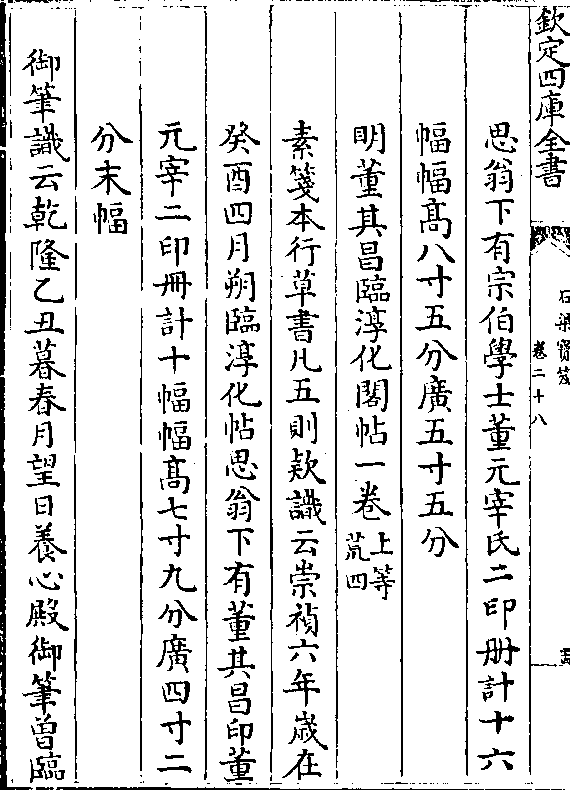 欽定四庫全書
石渠寶笈
卷二十八
思翁下有宗伯學士董元宰氏二印册計十六
幅幅髙八寸五分廣五寸五分
明董其昌臨淳化閣帖一卷上等荒四
素箋本行草書凡五則欵識云崇禎六年嵗在
癸酉四月朔臨淳化帖思翁下有董其昌印董
元宰二印册計十幅幅髙七寸九分廣四寸二
分末幅
御筆識云乾隆乙丑暮春月望日養心殿御筆曽臨